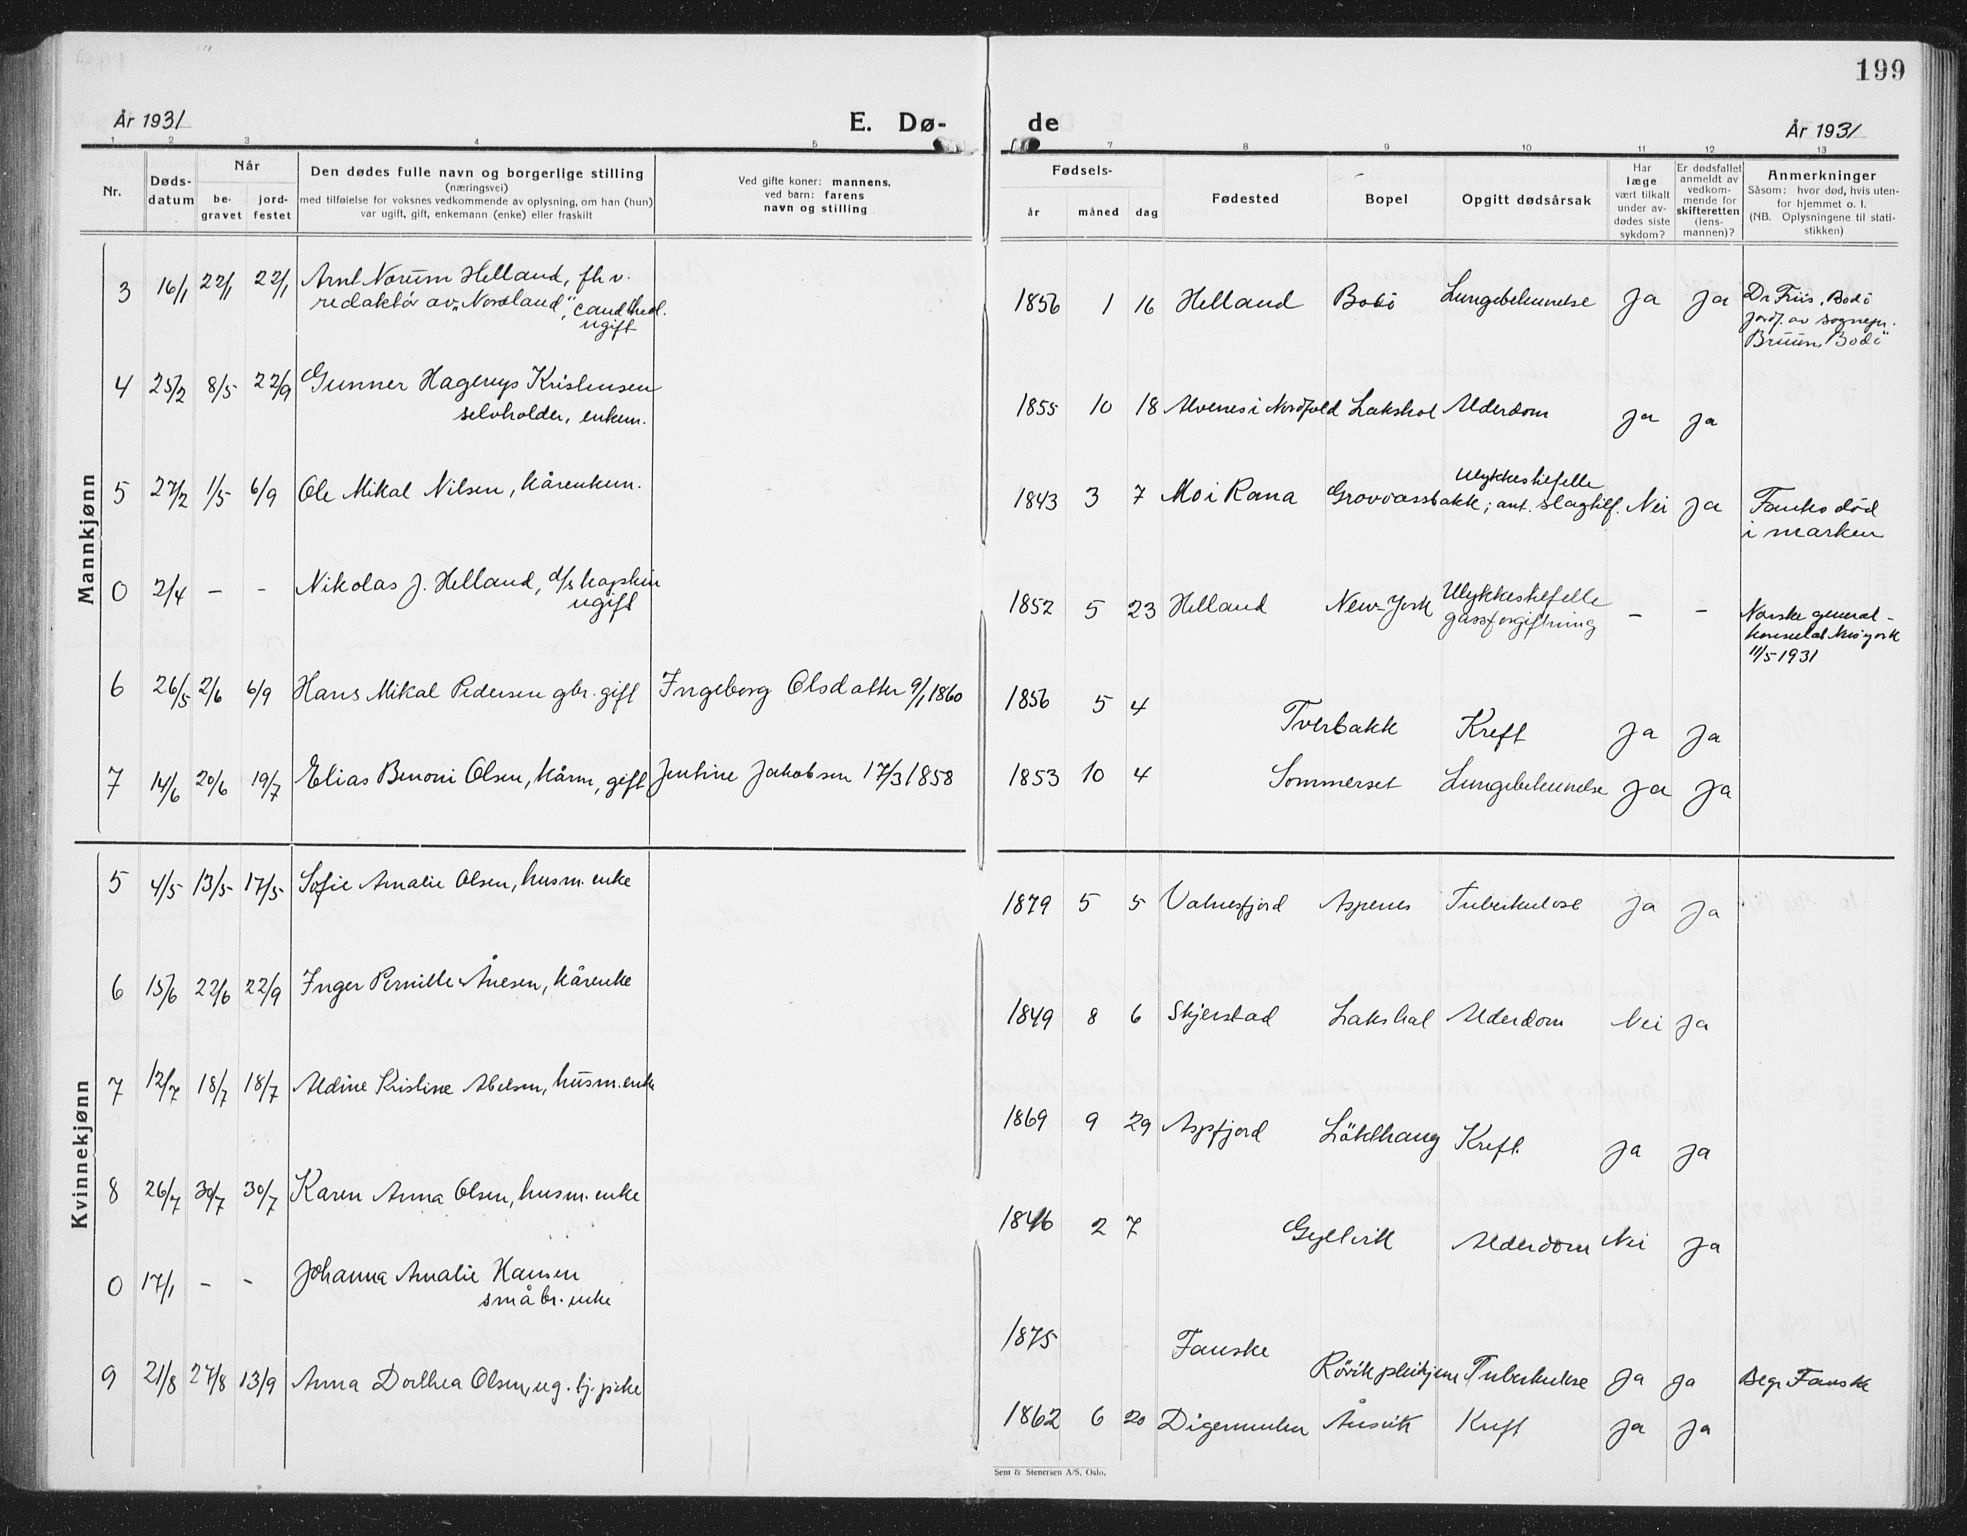 199
År 1931
E. Dø-
de
År 1931
1 2 3 4 5 7 8 9 10 11 12 13
Nr.
Døds-
datum
Når
be-
gravet
jord-
festet
Den dødes fulle navn og borgerlige stilling
(næringsvei)
med tilføielse for voksnes vedkommende av oplysning, om han (hun)
var ugift, gift, enkemann (enke) eller fraskilt
Ved gifte koner: mannens,
ved barn: farens
navn og stilling
Fødsels-
år måned dag
Fødested
Bopel
Opgitt dødsårsak
Har
læge
vært tilkalt
under av-
dødes siste
sykdom?
Er dødsfallet
anmeldt av
vedkom-
mende for
skifteretten
(lens-
mannen)?
Anmerkninger
Såsom: hvor død, hvis uten-
for hjemmet o. l.
(NB. Oplysningene til stati-
stikken)
Mannkjønn
3 16/1 22/1 22/1 Arnt Norum Helland, fh v.
redaktör av „Nordland", cand theol.
ugift
1856 1 16 Helland Bodö Lungebetennelse Ja Ja Dr Friis, Bodö
jordf. av sognepr.
Bruun, Bodö
4 25/2 8/5 22/9 Gunner Hagerups Kristensen
selvholder, enkem.
1855 10 18 Alvenes i Nordfold Lakshol Alderdom Ja Ja
5 27/2 1/5 6/9 Ole Mikal Nilsen, kårenkem.
1843 3 7 Mo i Rana Grovassbakk Ulykkestilfelle
; ant. slagtilf. Nei Ja Fanks död
i marken
0 2/4 - - Nikolas J. Helland, d/s kaptein
ugift
1852 5 23 Helland New-York Ulykkestilfelle
gassforgiftning - - Norske general-
konsulat Newyork
11/5 1931
6 26/5 2/6 6/9 Hans Mikal Pedersen gbr. gift Ingeborg Olsdatter 9/1 1860
1856 5 4 Tverbakk Kreft Ja Ja
7 14/6 20/6 19/7 Elias Benoni Olsen, kårm, gift Jentine Jakobsen 17/3 1858
1853 10 4 Sommerset Lungebetennelse Ja Ja
Kvinnekjønn
5 4/5 13/5 17/5 Sofie Amalie Olsen, husm. enke
1879 5 5 Valnesfjord Aspenes Tuberkulose Ja Ja
6 15/6 22/6 22/9 Inger Pernille Ånesen, kårenke
1849 8 6 Skjerstad Lakshol Alderdom Nei Ja
7 12/7 18/7 18/7 Aldine Kristine Abelsen, husm. enke
1869 9 29 Aspfjord Löklhaug Kreft. Ja Ja
8 26/7 30/7 30/7 Karen Anna Olsen, husm. enke
1846 2 7 Gyltvik Alderdom Nei Ja
0 17/1 - - Johanna Amalie Hansen
småbr. enke
1875 Fauske Rövik pleihjem Tuberkulose Ja Ja Begr. Fauske
9 21/8 27/8 13/9 Anna Dorthea Olsen, ug. tj. pike
1862 6 20 Digermulen Åusvik Kreft Ja Ja
Sem & Stenersen A/S, Oslo.